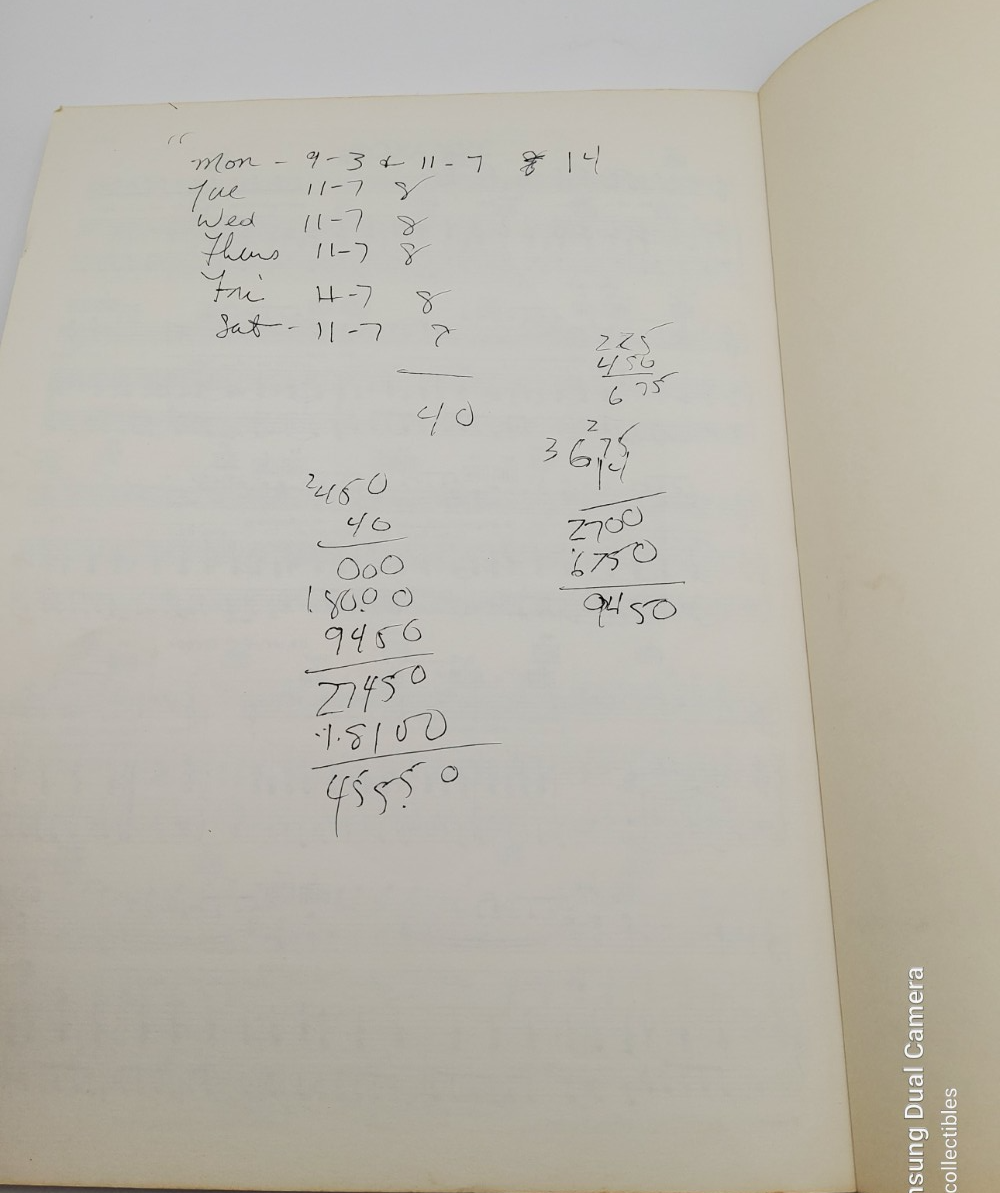 Mon - 9-3 & 11-7 8 14
Tue 11-7 8
Wed 11-7 8
Thurs 11-7 8
Fri 11-7 8
Sat - 11-7 8
40
225
450
675
2
3 675
14
2700
6750
9450
2450
40
000
18000
9450
27450
18100
45550
nsung Dual Camera
collectibles